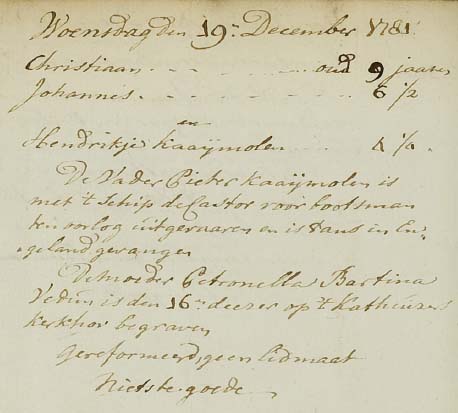 Woensdag den 19n. December 1781
Christiaan - - - - - oud 9 jaaren
Johannes - - - - - 6 1/2
en
Hendrikje Kaaijmolen - - 4 1/4
De Vader Pieter Kaaijmolen is
met 't schip de Castor voor bootsman
ten oorlog uitgevaaren en is thans in En-
geland gevangen
De moeder Petronella Bartina
Vedum is den 16n. deezer op 't Katheuzers
kerkhof begraven
Gereformeerd, geen lidmaat
Niets te goede